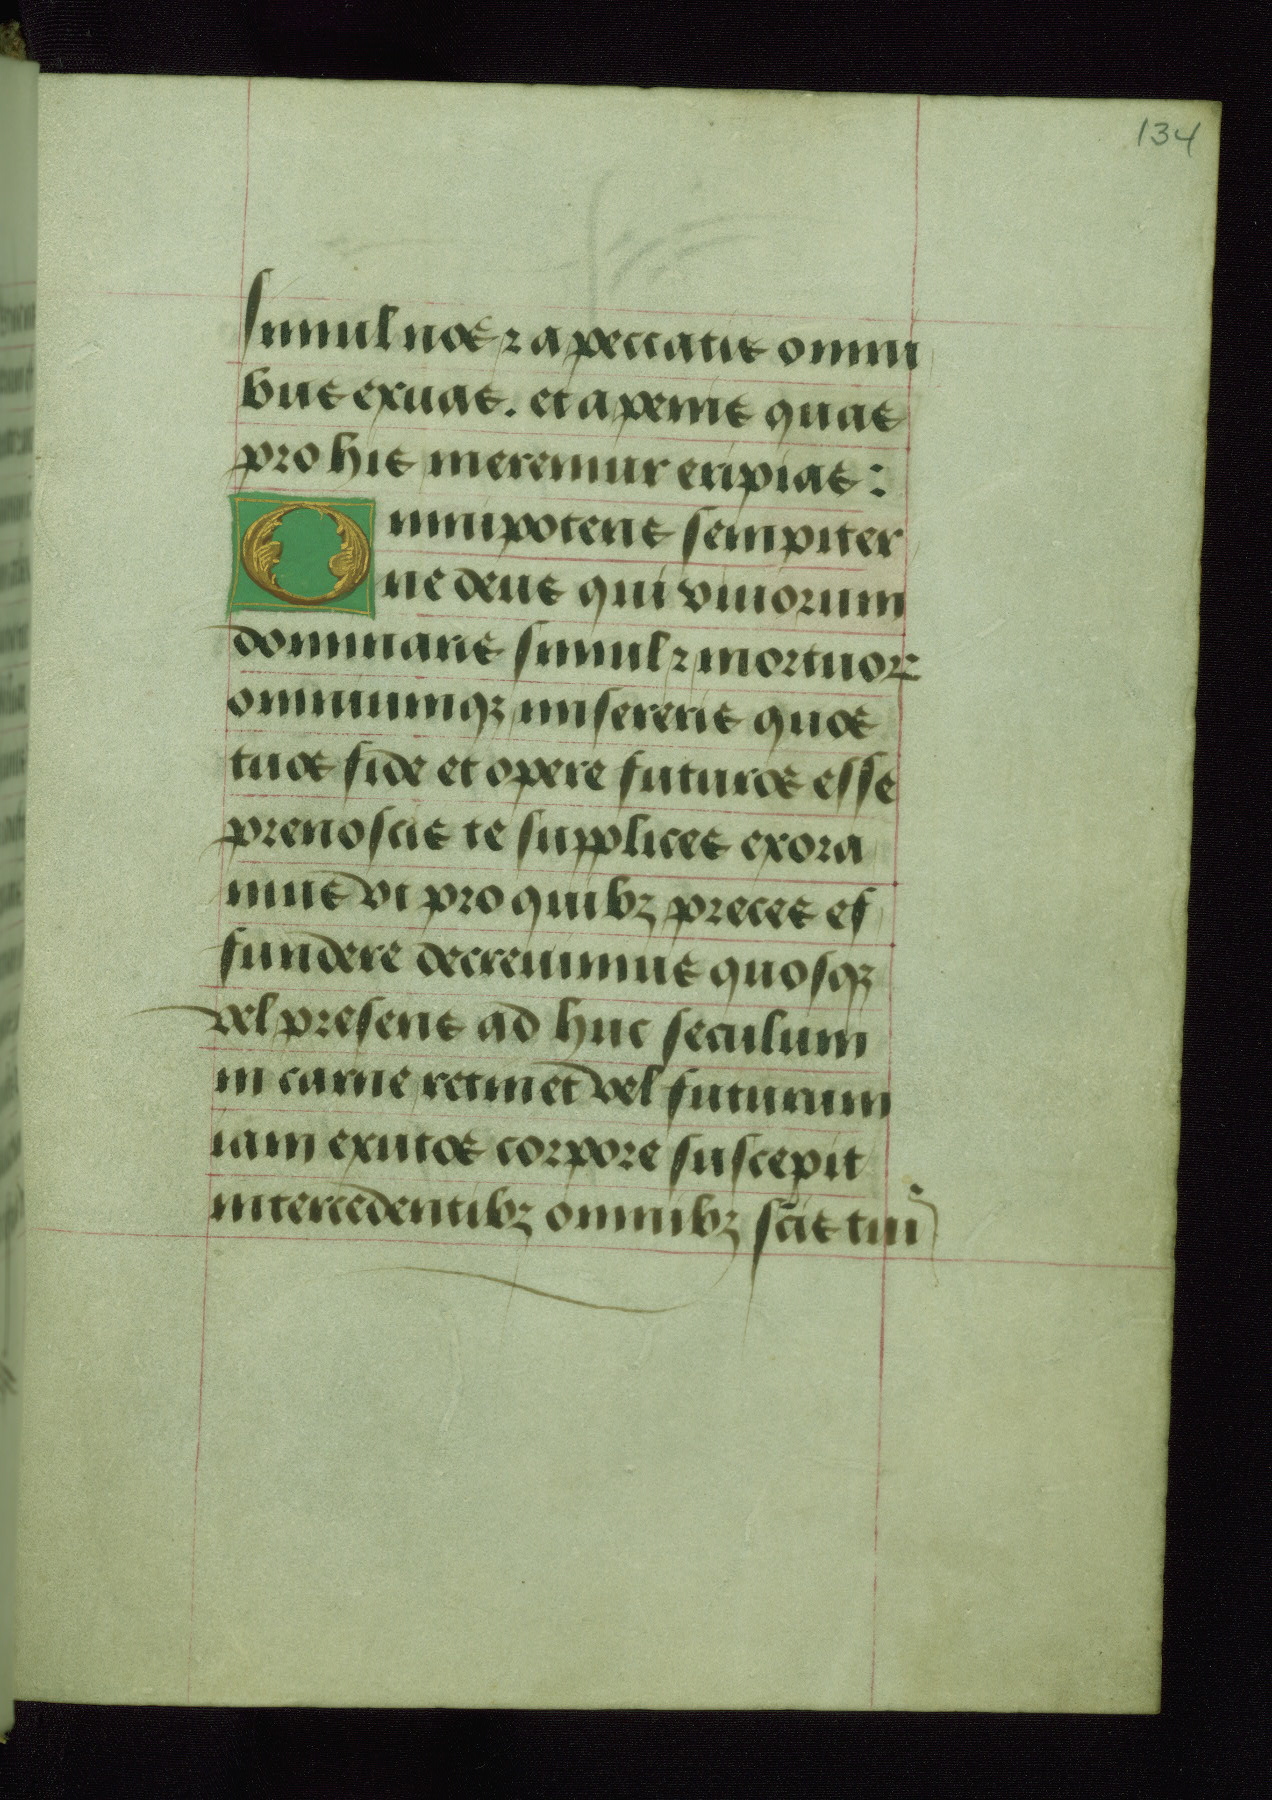 134
simul nos ⁊ a peccatis omni
bus exuas. et a penis quas
pro his meremur eripias:
Omnipotens sempiter
ne deus qui viuorum
dominaris simul ⁊ mortuoꝝ
omniumqꝫ misereris quos
tuos fide et opere futuros esse
prenoscis te supplices exora
mus vt pro quibꝫ preces ef
fundere decreuimus quosqꝫ
vel presens ad huc seculum
in carne retinet vel futurum
iam exutos corpore suscepit
intercedentibꝫ omnibꝫ scĩs tuis